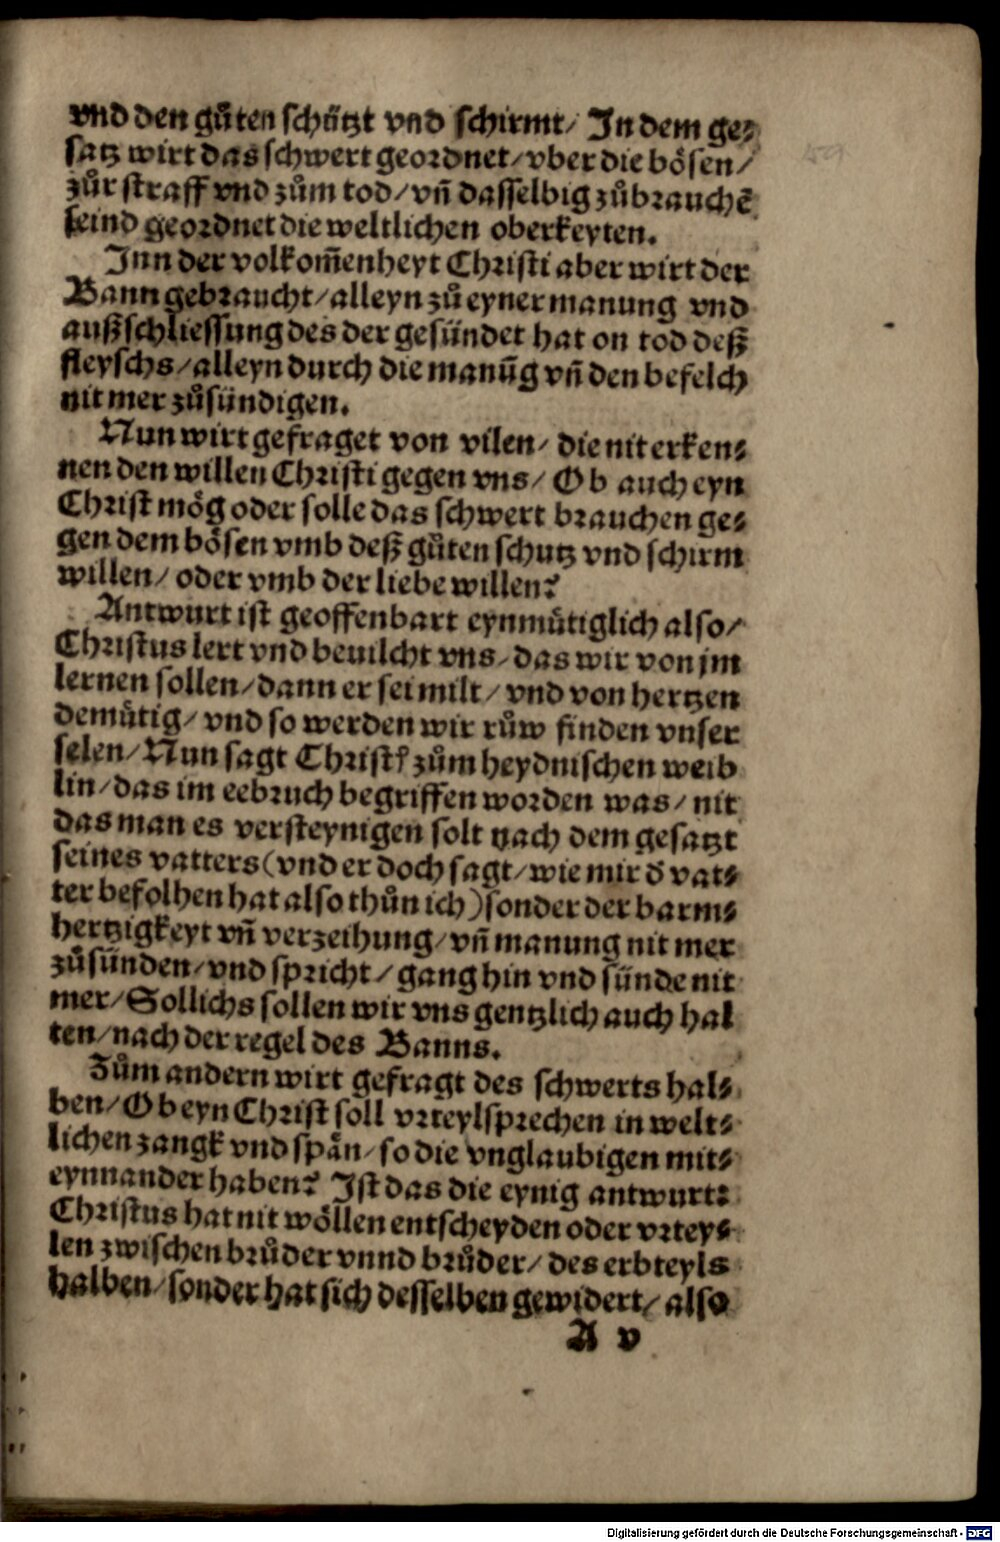 vnd den gůten schützt vnd schirmt/ In dem ge⸗
satz wirt das schwert geordnet/ vber die bösen/
zůr straff vnd zům tod/ vn̄ dasselbig zůbrauchē
seind geordnet die weltlichen oberkeyten.
Inn der volkom̄enheyt Christi aber wirt der
Bann gebraucht/ alleyn zů eyner manung vnd
außschliessung des der gesündet hat on tod deß
fleyschs/ alleyn durch die manūg vn̄ den befelch
nit mer zůsündigen.
Nun wirt gefraget von vilen/ die nit erken⸗
nen den willen Christi gegen vns/ Ob auch eyn
Christ mög oder solle das schwert brauchen ge⸗
gen dem bösen vmb deß gůten schutz vnd schirm
willen/ oder vmb der liebe willen?
Antwurt ist geoffenbart eynmütiglich also/
Christus lert vnd beuilcht vns/ das wir von jm
lernen sollen/ dann er sei milt/ vnd von hertzen
demütig/ vnd so werden wir růw finden vnser
selen/ Nun sagt Christꝰ zům heydnischen weib
lin/ das im eebruch begriffen worden was/ nit
das man es versteynigen solt nach dem gesatzt
seines vatters (vnd er doch sagt/ wie mir d̓ vat⸗
ter befolhen hat also thůn ich) sonder der barm⸗
hertzigkeyt vn̄ verzeihung/ vn̄ manung nit mer
zůsünden/ vnd spricht/ gang hin vnd sünde nit
mer/ Sollichs sollen wir vns gentzlich auch hal
ten/ nach der regel des Banns.
Zům andern wirt gefragt des schwerts hal⸗
ben/ Ob eyn Christ soll vrteylsprechen in welt⸗
lichen zangk vnd spän/ so die vnglaubigen mit⸗
eynnander haben? Ist das die eynig antwurt:
Christus hat nit wöllen entscheyden oder vrtey⸗
len zwischen brůder vnnd brůder/ des erbteyls
halben/ sonder hat sich desselben gewidert/ also
A v
59
Digitalisierung gefördert durch die Deutsche Forschungsgemeinschaft - DFG